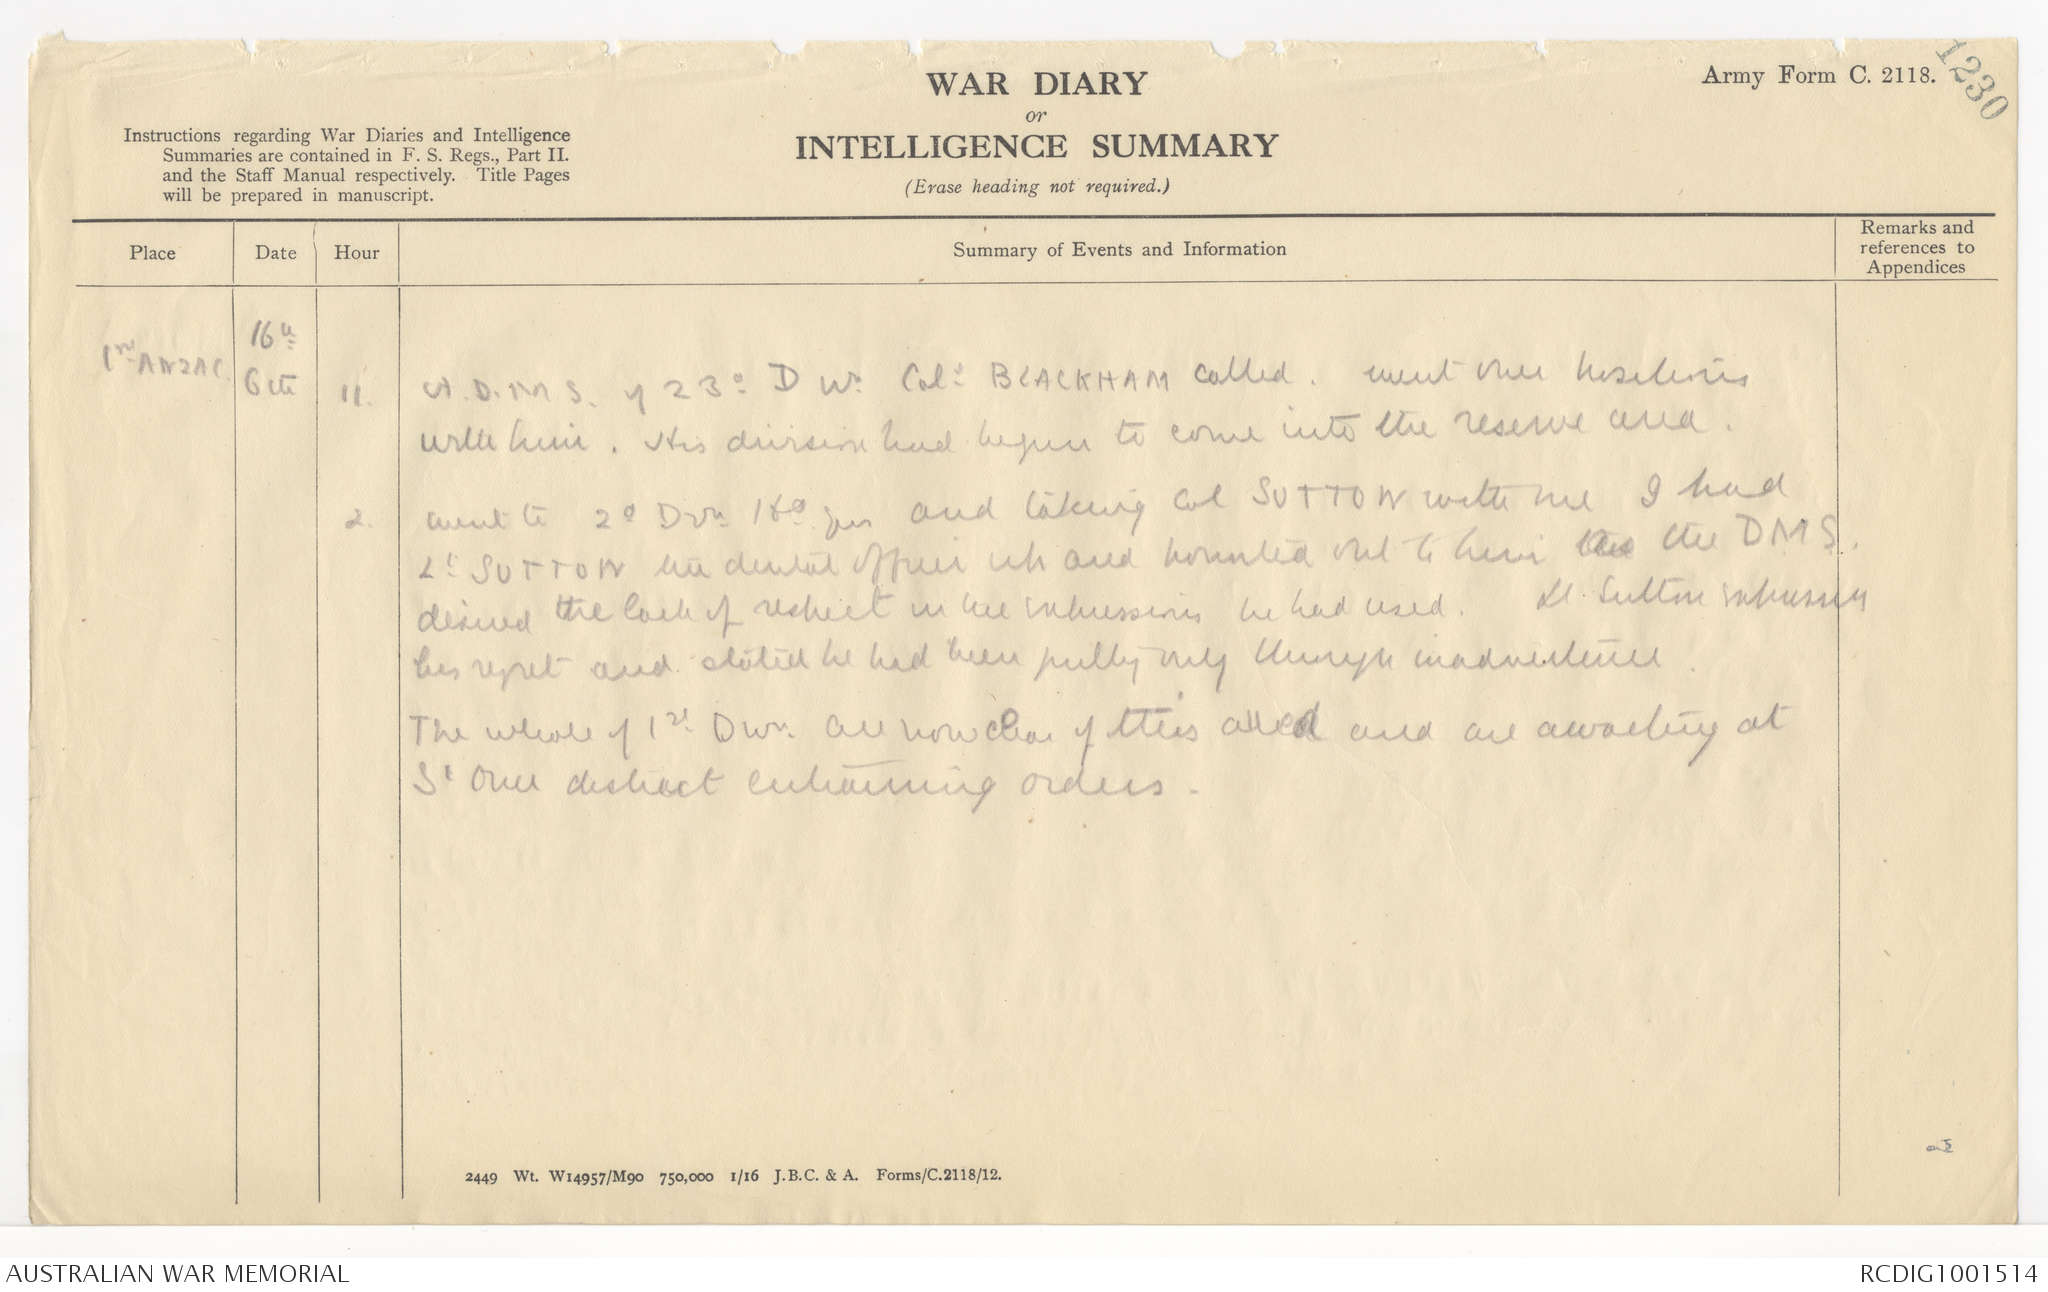 1230
Army Form C. 2118.
WAR DIARY
or
INTELLIGENCE SUMMARY
(Erase heading not required.)
Instructions regarding War Diaries and Intelligence
Summaries are contained in F. S. Regs., Part II.
and the Staff Manual respectively. Title Pages
will be prepared in manuscript.
Place
Date
Hour
Summary of Events and Information
Remarks and
references to
Appendices
1st ANZAC
16th
Oct
11. A.D.M.S. of 23d Divn. Col. BLACKHAM called. Went over positions
with him. His division had begun to come into the reserve area.
2. Went to 2d Divn. Hd. Qrs and taking Col SUTTON with me I had
Lt SUTTON the dental officer up and pointed out to him the DMS.
desired the lack of respect in the expressions he had used. Lt. Sutton expresses
his regret and stated he had been guilty only through inadvertence.
The whole of 1st Divn. are now clear of this area and are awaiting at
St Omer district entraining orders.
2449 Wt. W14957/M90 750,000 1/16 J.B.C. & A. Forms/C.2118/12.
AUSTRALIAN WAR MEMORIAL
RCDIG1001514